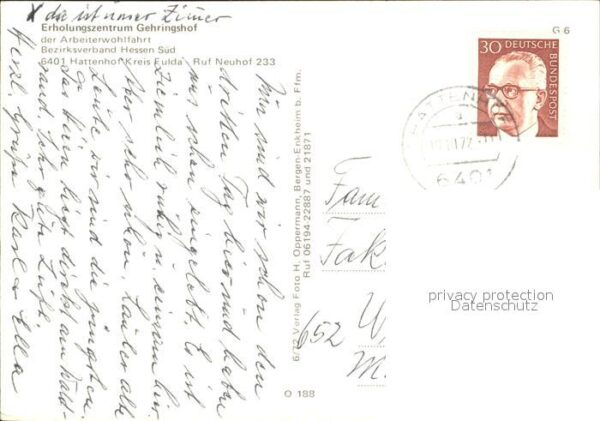 X das ist unser Zimmer
Erholungszentrum Gehringshof
der Arbeiterwohlfahrt
Bezirksverband Hessen Süd
6401 Hattenhof Kreis Fulda · Ruf Neuhof 233
G 6
30 DEUTSCHE BUNDESPOST
HATTENHOF
6401
Nun sind wir schon den
dritten Tag hier und haben
uns schon eingelebt. Es ist
ziemlich ruhig u. einsam hier
Aber sehr schön. Lauter alte
Leute wir sind die jüngsten
das Heim liegt direkt am Wald-
rand, sehr gute Luft.
Herzl. Grüße Karl u. Ella
6/72 Verlag Foto H. Oppermann, Bergen-Enkheim b. Ffm.
Ruf 06194-22887 und 21871
Fam
Fak
652 W
O 188
privacy protection
Datenschutz